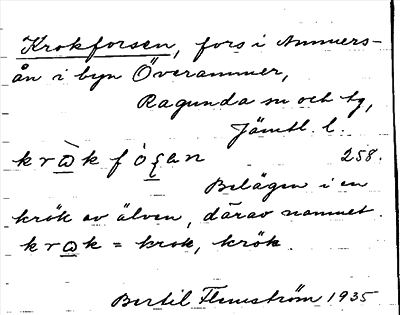 Krokforsen, fors i Ammers-
ån i byn Överammer,
Ragunda sn och tg,
Jämtl. l.
258.
Belägen i en
krök av älven, därav namnet.
= krok, krök.
Bertil Flemström 1935